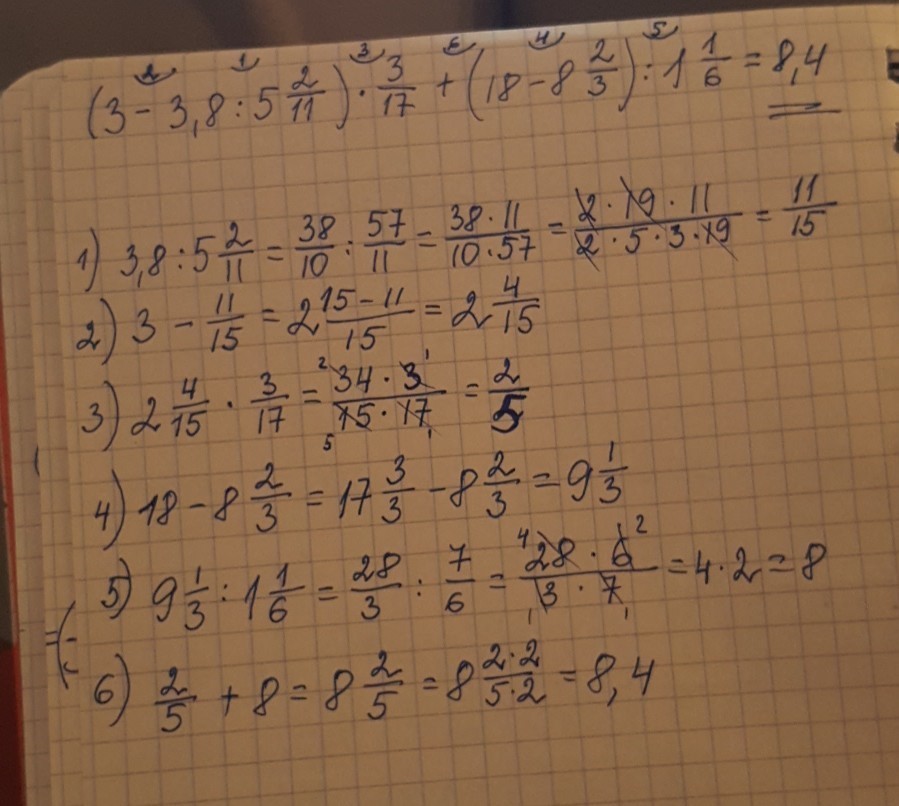 (3 - 3,8 : 5 2/11) · 3/17 + (18 - 8 2/3) : 1 1/6 = 8,4
1) 3,8 : 5 2/11 = 38/10 : 57/11 = 38 · 11/10 · 57 = 2 · 19 · 11/2 · 5 · 3 · 19 = 11/15
2) 3 - 11/15 = 2 15 - 11/15 = 2 4/15
3) 2 4/15 · 3/17 = 34 · 3/15 · 17 = 2/5
4) 18 - 8 2/3 = 17 3/3 - 8 2/3 = 9 1/3
5) 9 1/3 : 1 1/6 = 28/3 : 7/6 = 28 · 6/3 · 7 = 4 · 2 = 8
6) 2/5 + 8 = 8 2/5 = 8 2 · 2/5 · 2 = 8,4